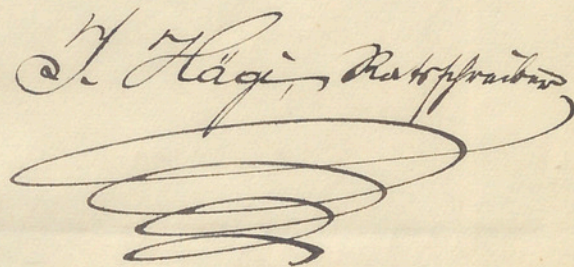 J. Hägi, Ratsschreiber